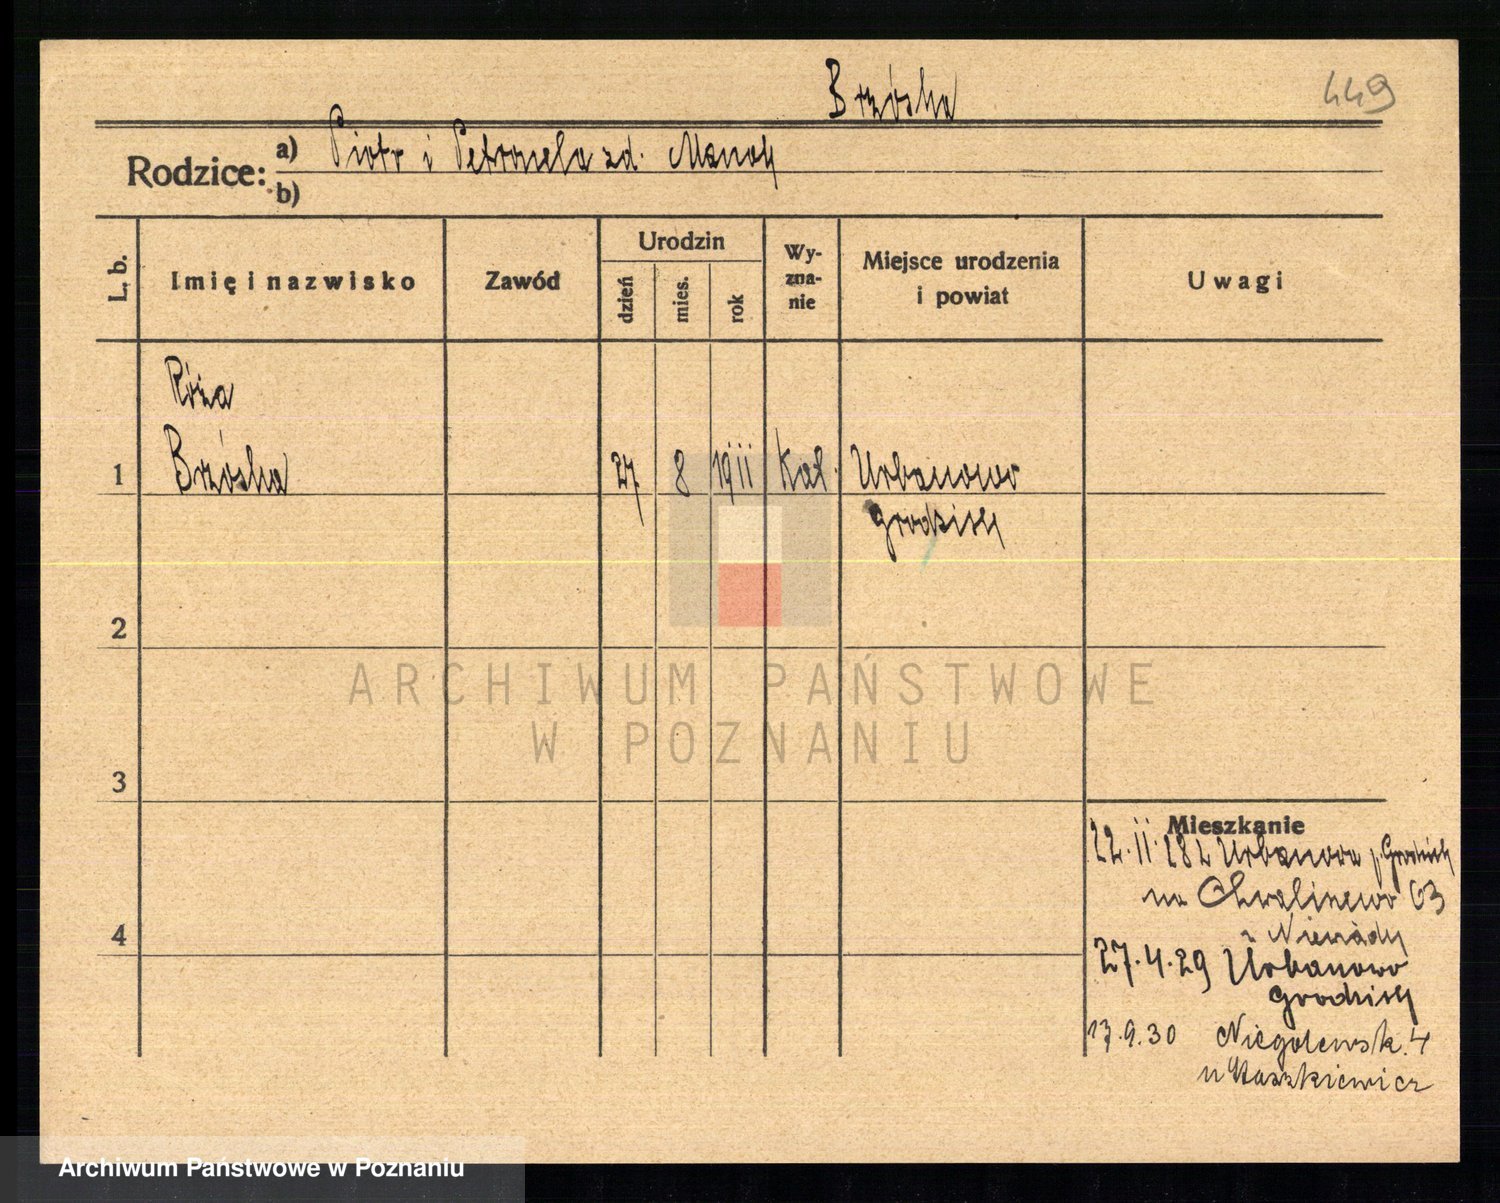 Brzóska
449
Rodzice: a) Piotr i Petronela zd.
b)
L. b.
Imię i nazwisko
Zawód
Urodzin
dzień
mies.
rok
Wy-
zna-
nie
Miejsce urodzenia
i powiat
Uwagi
Róża
1 Brzóska 27 8 1911 Kat. Urbanowo
Grodzisk
2
ARCHIWUM PAŃSTWOWE
W POZNANIU
3
Mieszkanie
22.11.28 z Urbanowa p. Grodzisk
na 63
4
27.4.29 Urbanowo
Grodzisk
17.9.30 Niegolewsk. 4
u
Archiwum Państwowe w Poznaniu